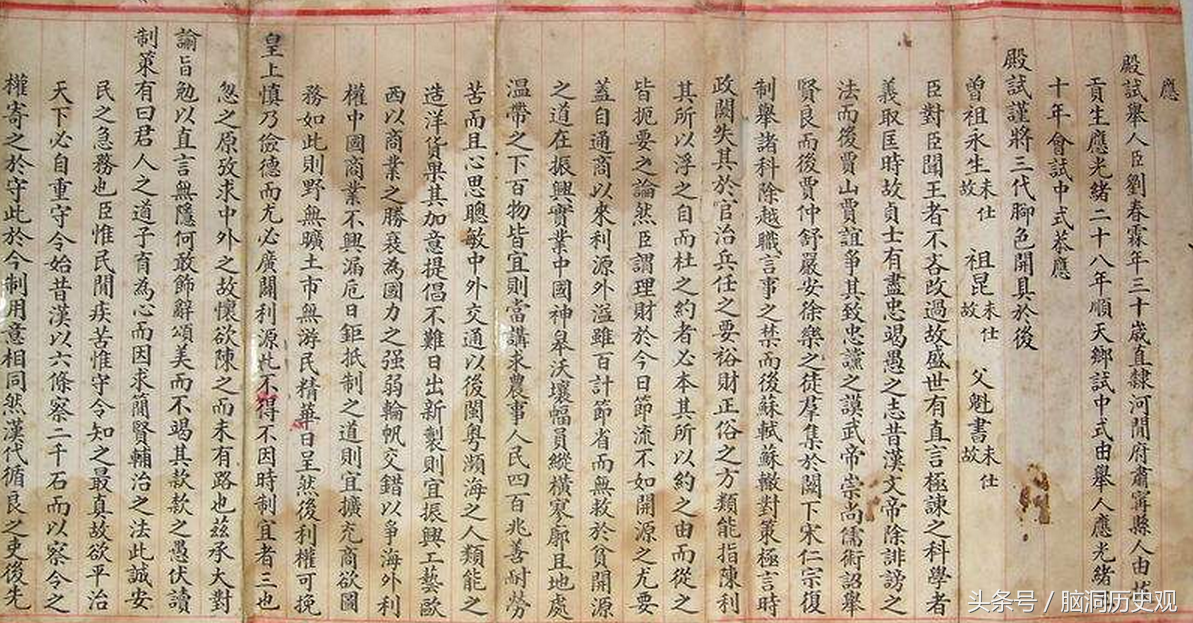 應
殿試舉人臣劉春霖年三十歲直隸河間府肅寧縣人由
貢生應光緒二十八年順天鄉試中式由舉人應光緒
十年會試中式恭應
殿試謹將三代腳色開具於後
曾祖永生未仕故 祖昆未仕故 父魁書未仕故
臣對臣聞王者不吝改過故盛世有直言極諫之科學者
義取匡時故貞士有盡忠竭愚之志昔漢文帝除誹謗之
法而後賈山賈誼爭其致忠讜之謨武帝崇尚儒術詔舉
賢良而後賈仲舒嚴安徐樂之徒羣集於闕下宋仁宗復
制舉諸科除越職言事之禁而後蘇軾蘇轍對策極言時
政闕失其於官治兵任之要裕財正俗之方類能指陳利
其所以浮之自而杜之約者必本其所以約之由而從之
皆扼要之論然臣謂理財於今日節流不如開源之尤要
蓋自通商以來利源外溢雖百計節省而無救於貧開源
之道在振興實業中國神皋沃壤幅員縱橫寥廓且地處
溫帶之下百物皆宜則當講求農事人民四百兆善耐勞
苦而且心思聰敏中外交通以後閩粵瀕海之人類能之
造洋貨果其加意提倡不難日出新製則宜振興工藝歐
西以商業之勝衰為國力之强弱輪帆交錯以爭海外利
權中國商業不興漏卮日鉅抵制之道則宜擴充商欲圖
務如此則野無曠土市無游民精華日呈然後利權可挽
皇上慎乃儉德而尤必廣闢利源此不得不因時制宜者三也
怱之原攷求中外之故懷欲陳之而未有路也茲承大對
諭旨勉以直言無隱何敢飾辭頌美而不竭其款款之愚伏讀
制策有曰君人之道子育為心而因求簡賢輔治之法此誠安
民之急務也臣惟民間疾苦惟守令知之最真故欲平治
天下必自重守令始昔漢以六條察二千石而以察令之
權寄之於守此於今制用意相同然漢代循良之吏後先
头条号 / 脑洞历史观